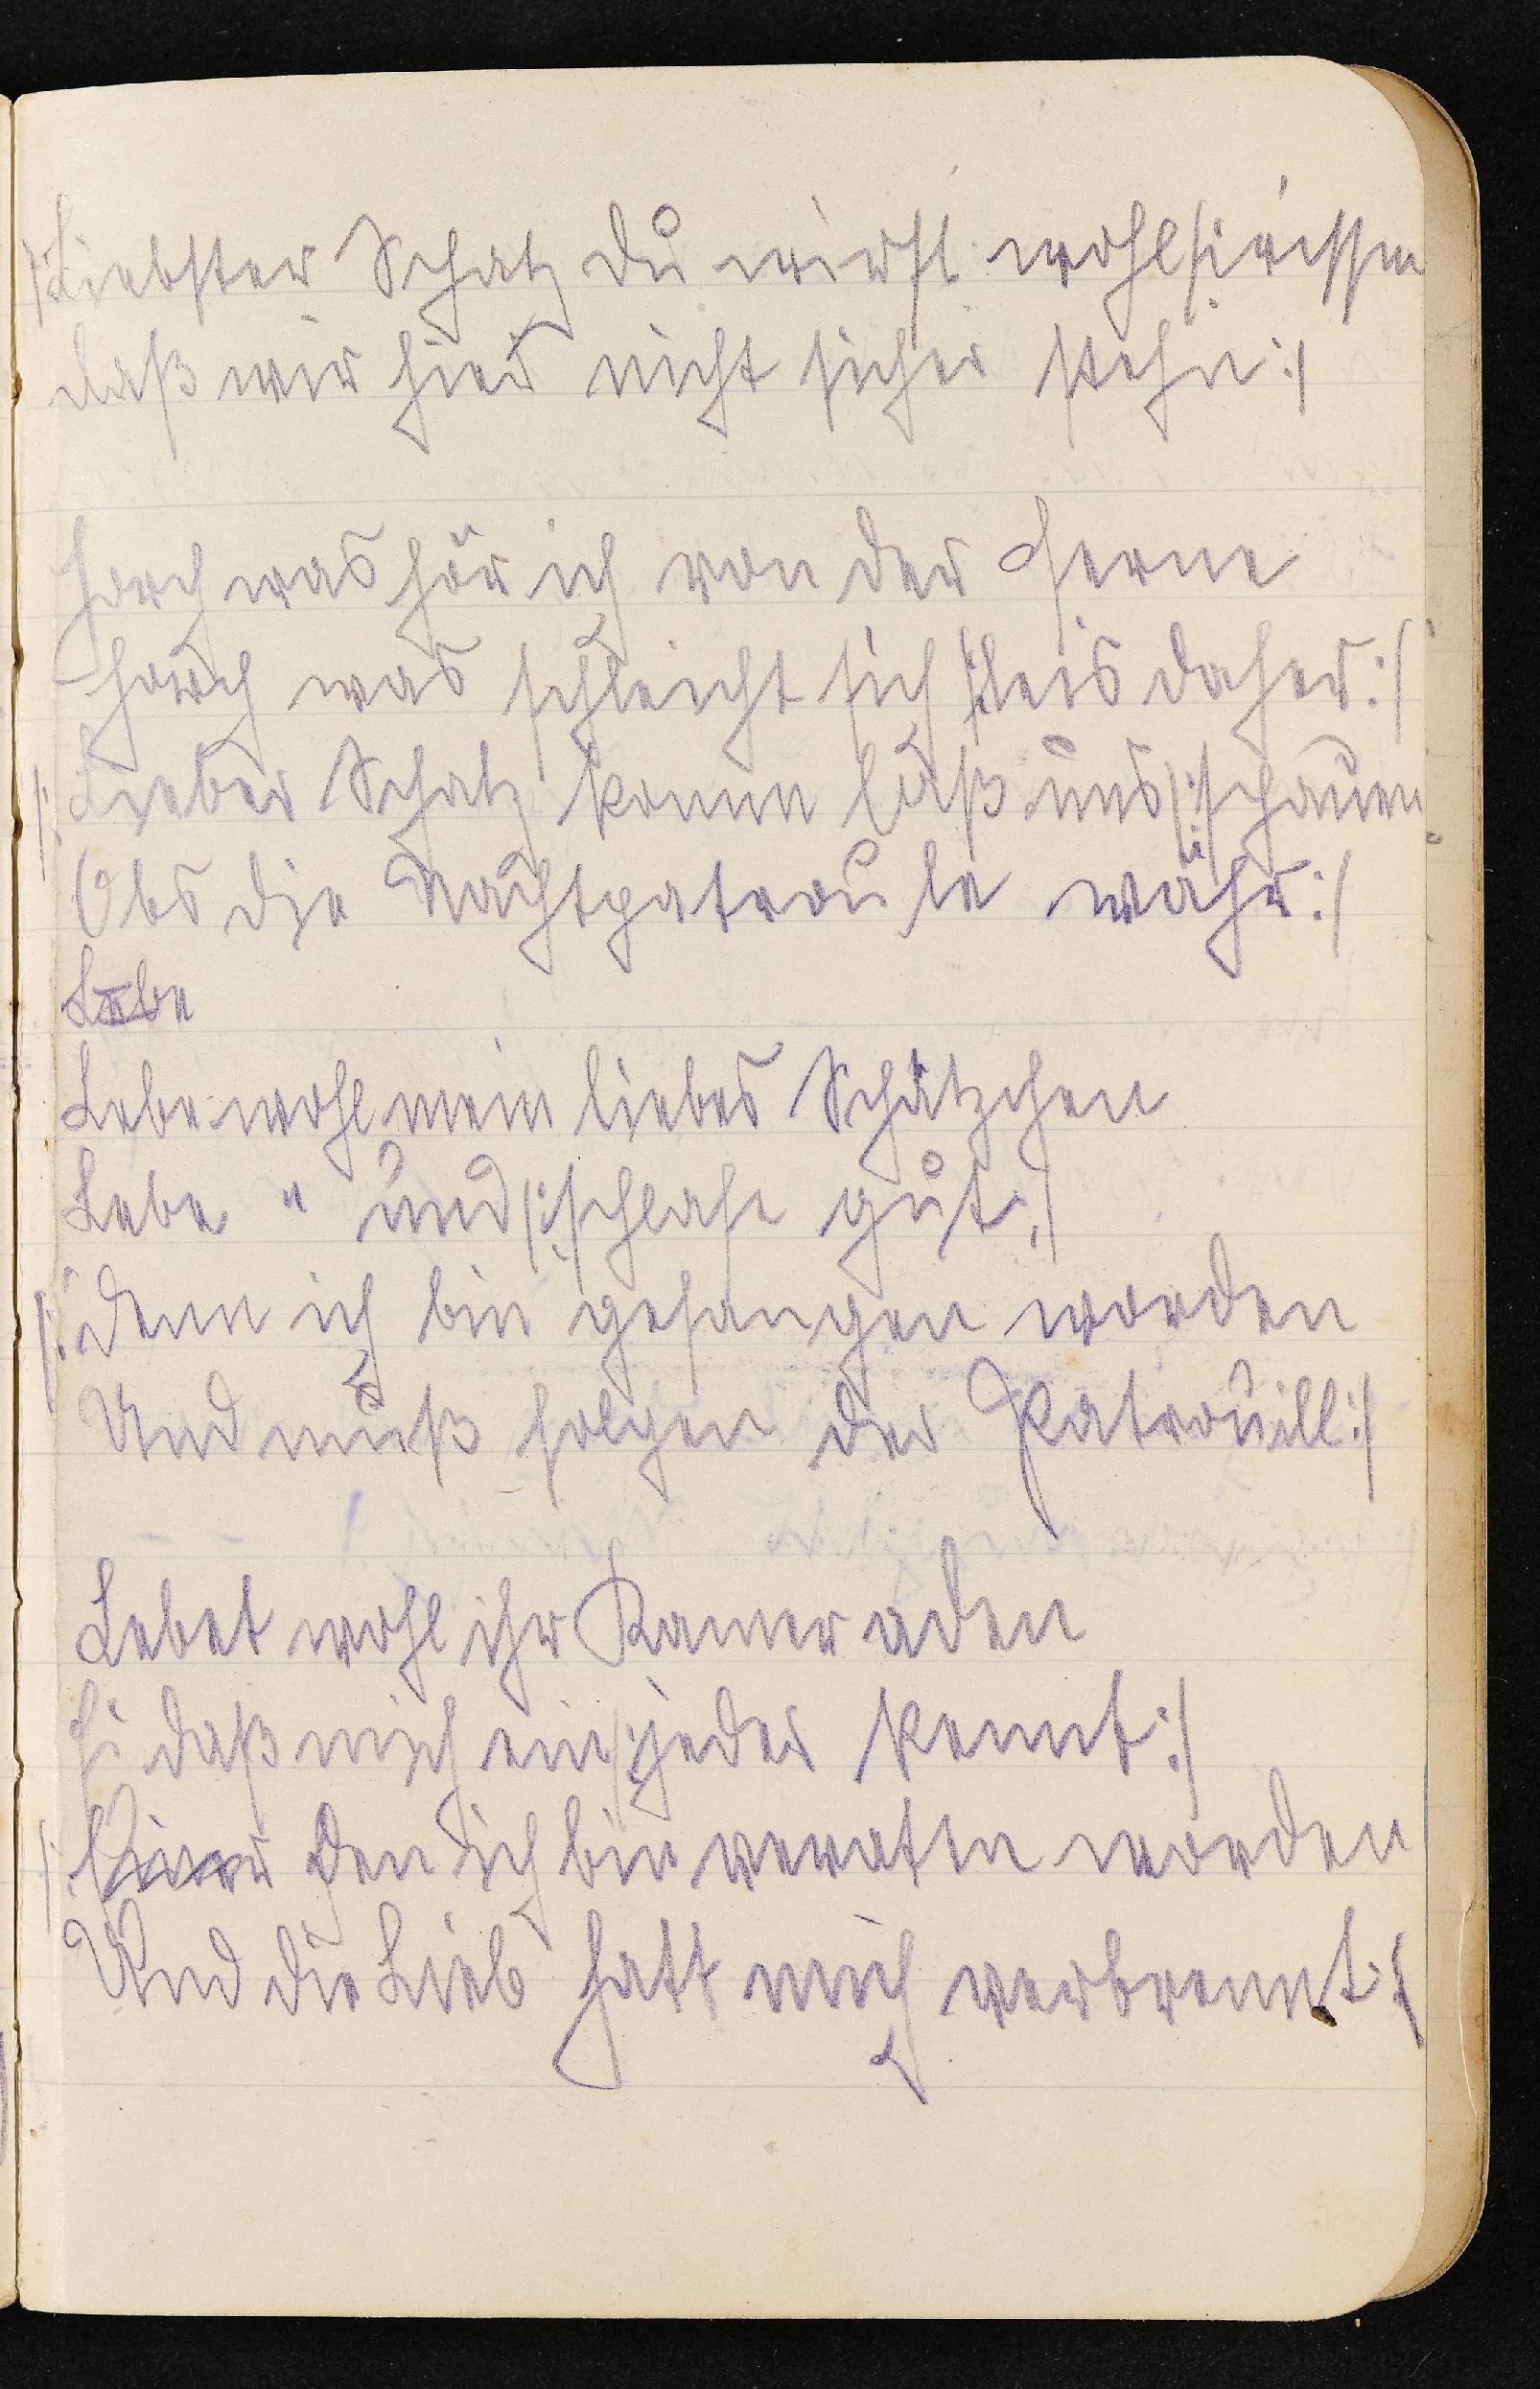 /: Liebster Schatz du wirst wohl /: wissen
daß wir hier nicht sicher stehn :/
Horch was hör ich von der Ferne
Horch was schleicht sich /: leis daher :/
/: Lieber Schatz komm laß uns /: schauen
Obs die Nachtpatroule währ :/
Lebe
Lebe wohl mein liebes Schätzchen
Lebe " und /: schlafe gut :/
/: denn ich bin gefangen worden
Und muß folgen der Patrouill :/
Lebet wohl ihr Kameraden
daß mich ein /: jeder kennt :/
/: den ich bin veraten worden
Und die Lieb hatt mich verbrennt :/